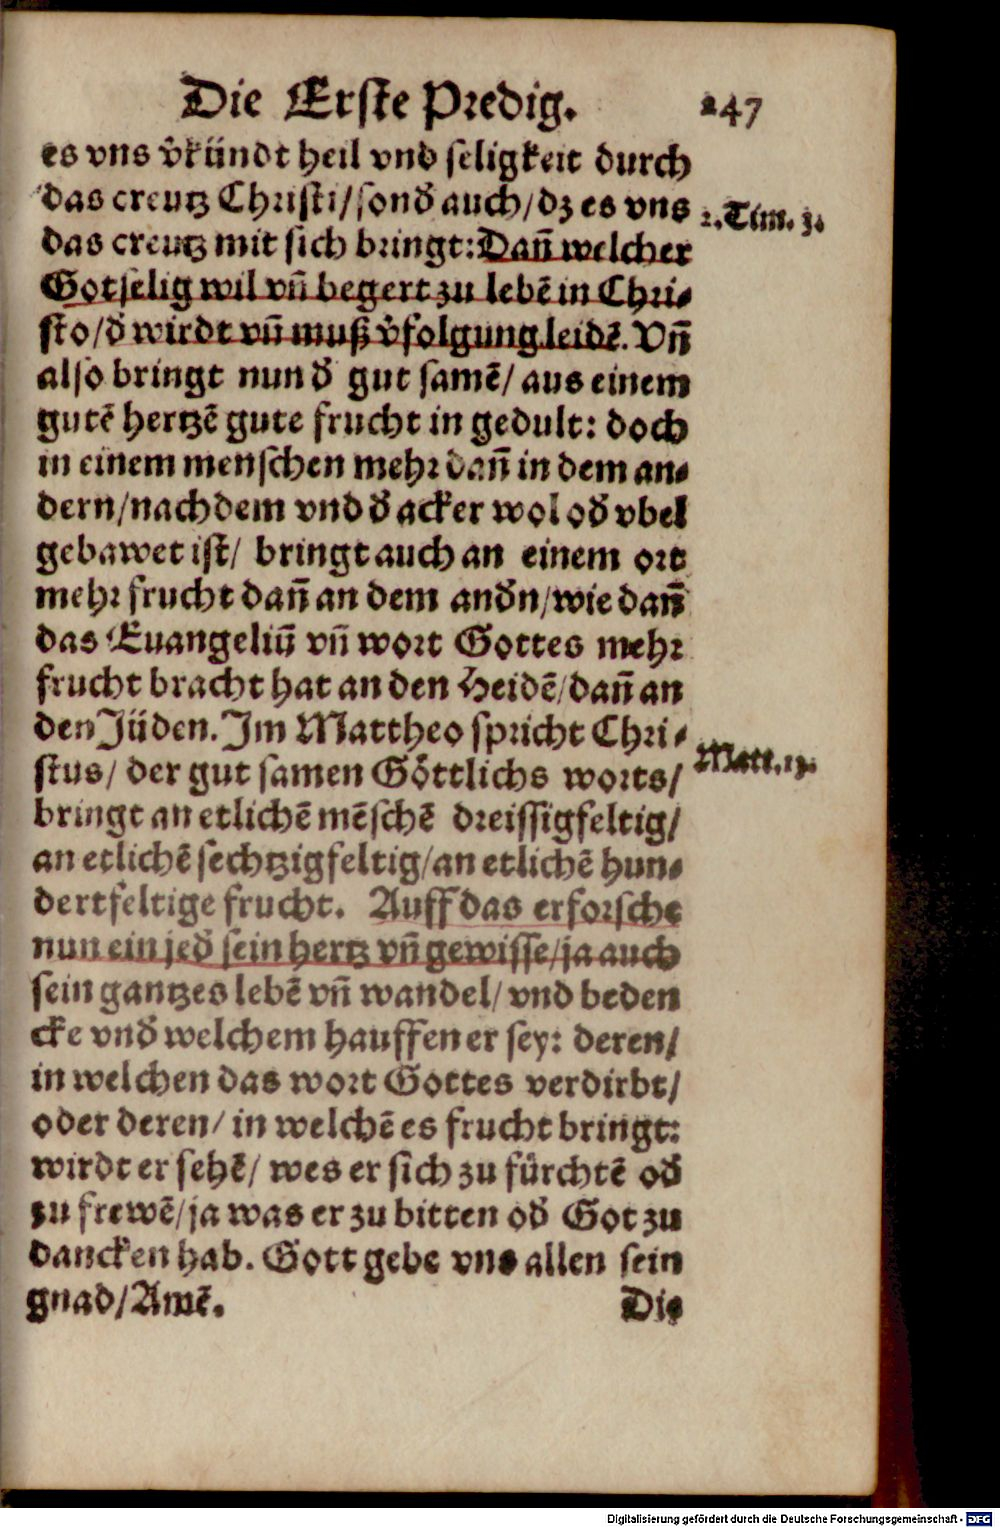 Die Erste Predig. 247
es vns v̊kündt heil vnd seligkeit durch
das creutz Christi/sonď auch/dz es vns
2. Tim. 3.
das creutz mit sich bringt: Dañ welcher
Gotselig wil vñ begert zu lebē in Chri-
sto/ď wirdt vñ muß v̊folgung leidē. Vñ
also bringt nun ď gut samē/ aus einem
gutē hertzē gute frucht in gedult: doch
in einem menschen mehr dañ in dem an-
dern/nachdem vnd ď acker wol oď vbel
gebawet ist/ bringt auch an einem ort
mehr frucht dañ an dem anďn/wie dañ
das Euangeliū vñ wort Gottes mehr
frucht bracht hat an den Heidē/dañ an
den Jüden. Im Mattheo spricht Chri-
Matt. 13.
stus/ der gut samen Göttlichs worts/
bringt an etlichē mēschē dreissigfeltig/
an etlichē sechtzigfeltig/an etlichē hun-
dertfeltige frucht. Auff das erforsche
nun ein jeď sein hertz vñ gewisse/ja auch
sein gantzes lebē vñ wandel/ vnd beden
cke vnď welchem hauffen er sey: deren/
in welchen das wort Gottes verdirbt/
oder deren/ in welchē es frucht bringt:
wirdt er sehē/ wes er sich zu fürchtē oď
zu frewē/ja was er zu bitten oď Got zu
dancken hab. Gott gebe vns allen sein
gnad/Amē.
Die
Digitalisierung gefördert durch die Deutsche Forschungsgemeinschaft - DFG